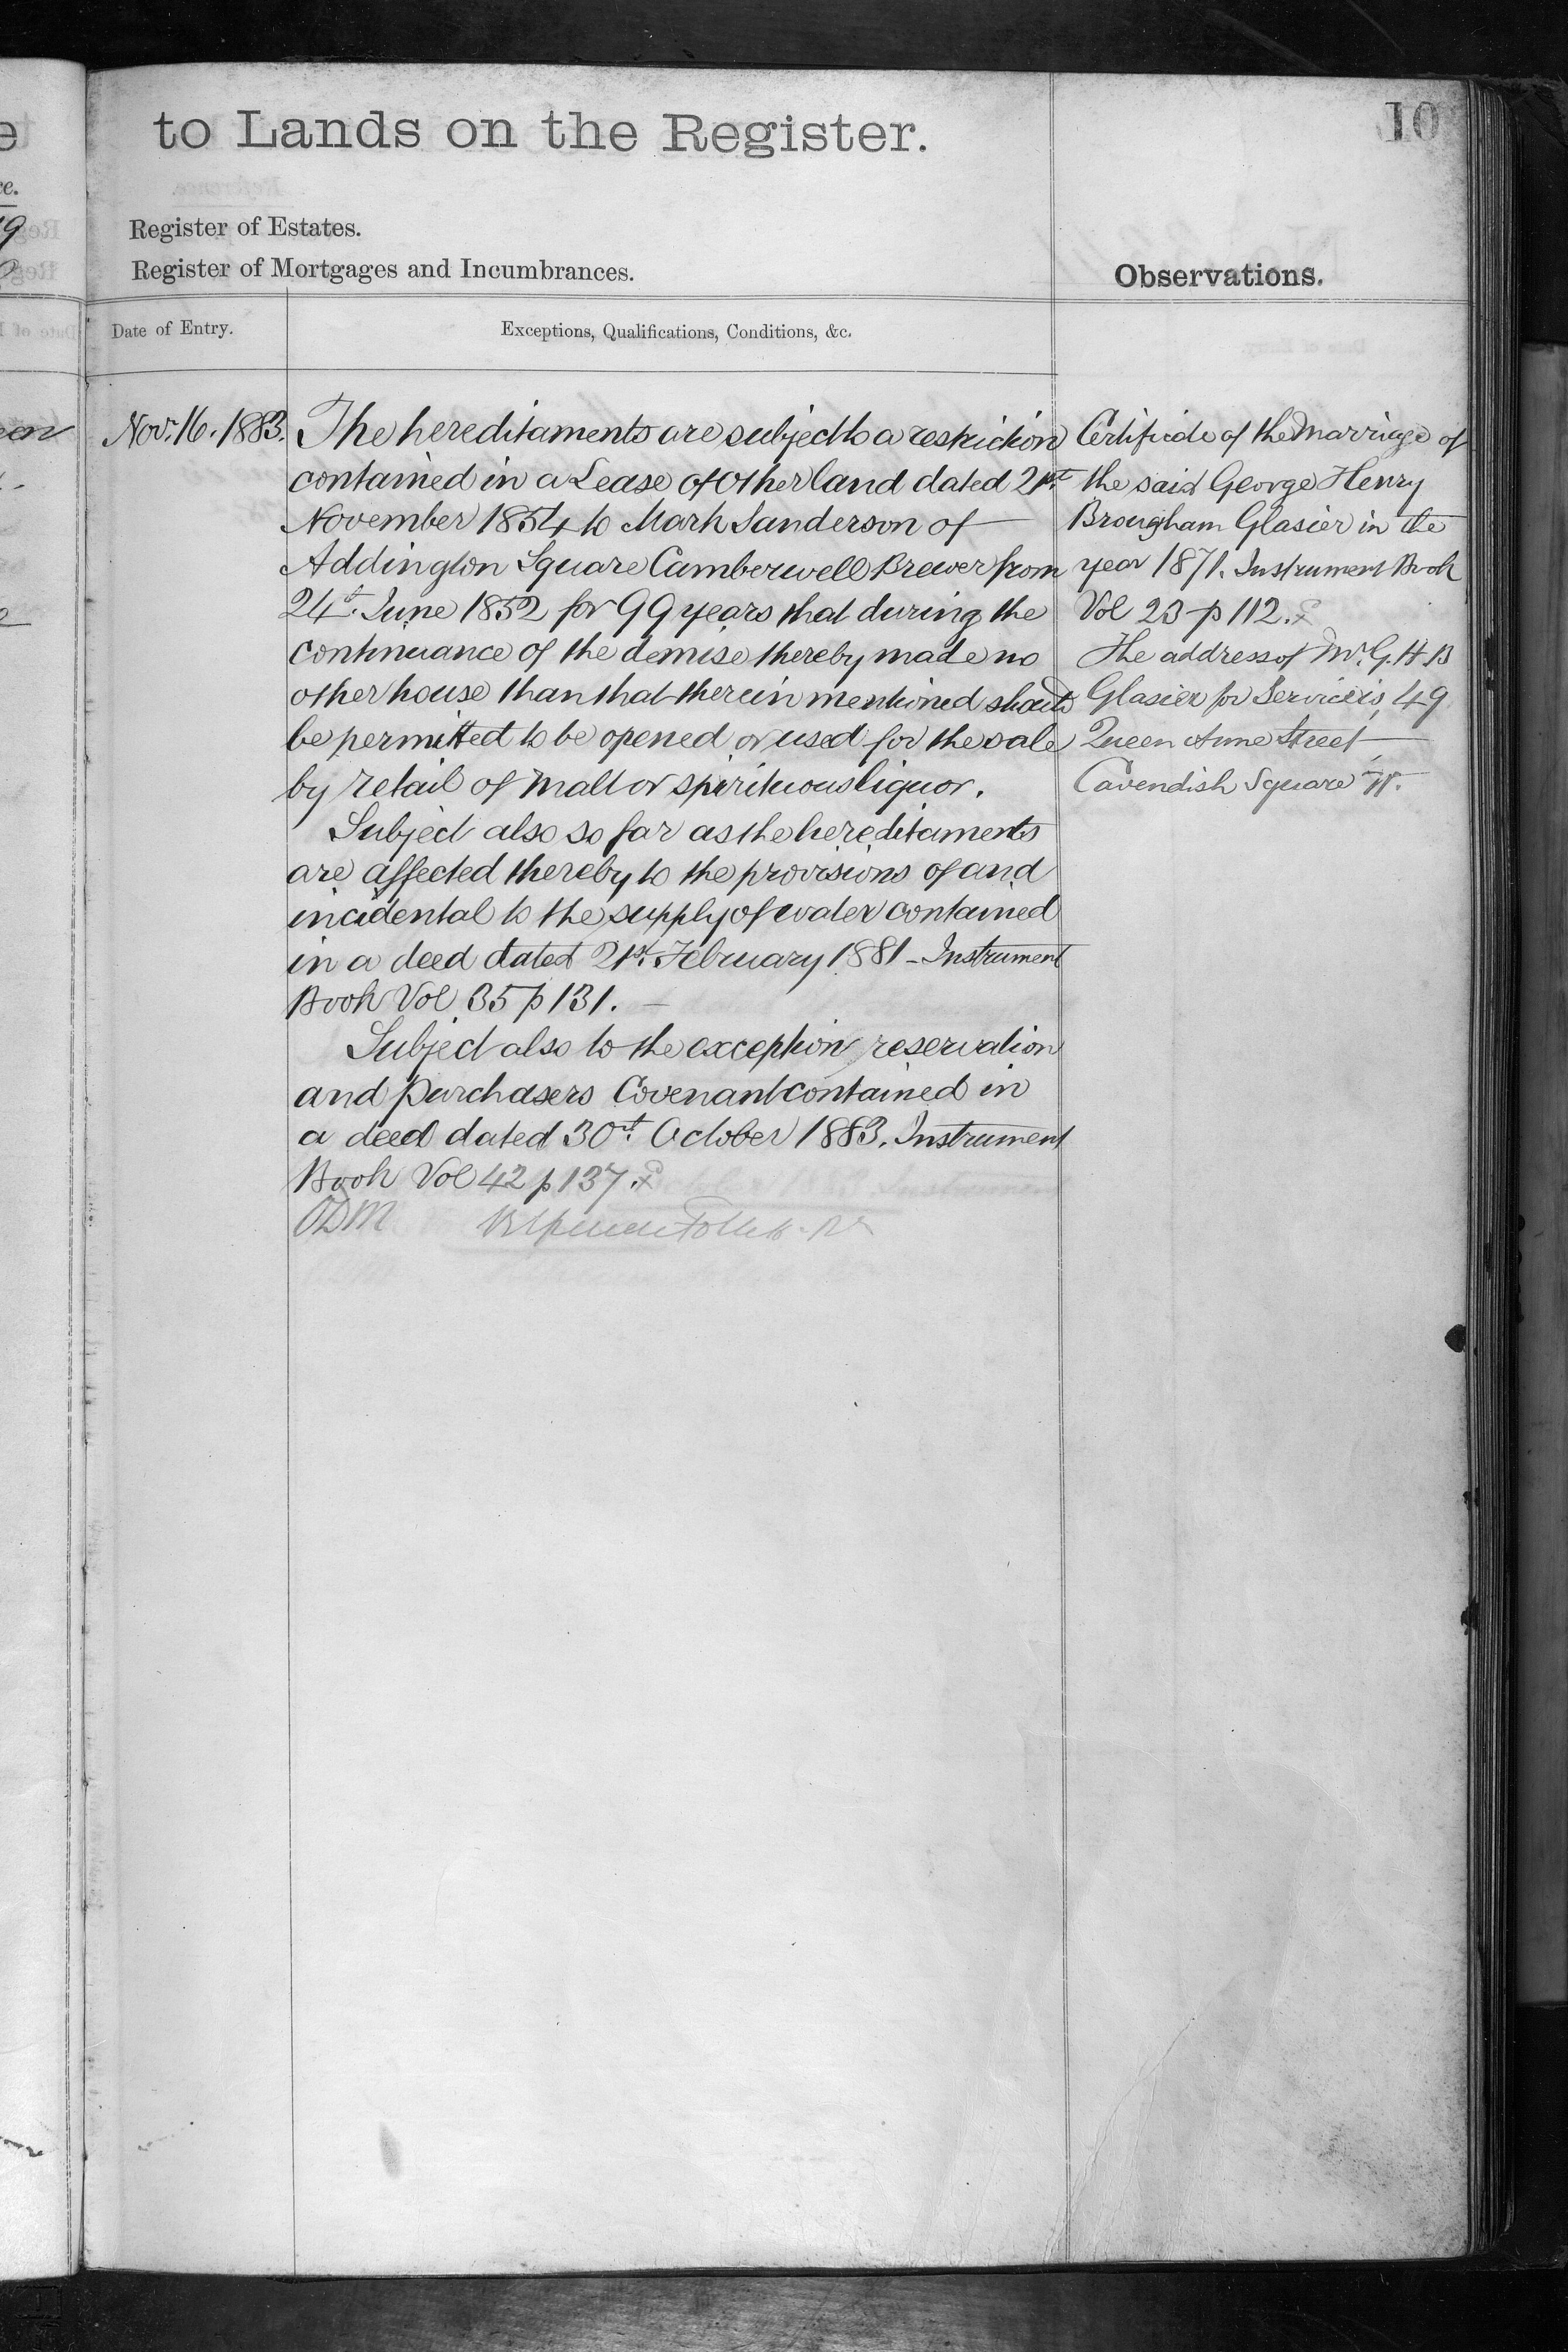 to Lands on the Register.
10
Register of Estates.
Register of Mortgages and Incumbrances.
Observations.
Date of Entry.
Exceptions, Qualifications, Conditions, &c.
Nov. 16. 1883.
The hereditaments are subject to a restriction
contained in a Lease of other land dated 21st.
November 1854 to Mark Sanderson of
Addington Square Camberwell Brewer from
24t. June 1852 for 99 years that during the
continuance of the demise thereby made no
other house than that therein mentioned should
be permitted to be opened or used for the sale
by retail of Malt or Spirituous liquor.
Subject also so far as the hereditaments
are affected thereby to the provisions of and
incidental to the supply of water contained
in a deed dated 21st. February 1881 - Instrument
Book Vol 35 p 131. -
Subject also to the exception reservation
and Purchasers Covenant contained in
a deed dated 30t. October 1883. Instrument
Book Vol 42 p 137.
Certificate of the Marriage of
the said George Henry
Brougham Glasier in the
year 1871. Instrument Book
Vol 23 p 112.
The address of Mr. G. H. B
Glasier for Service is 49
Queen Anne Street
Cavendish Square W.